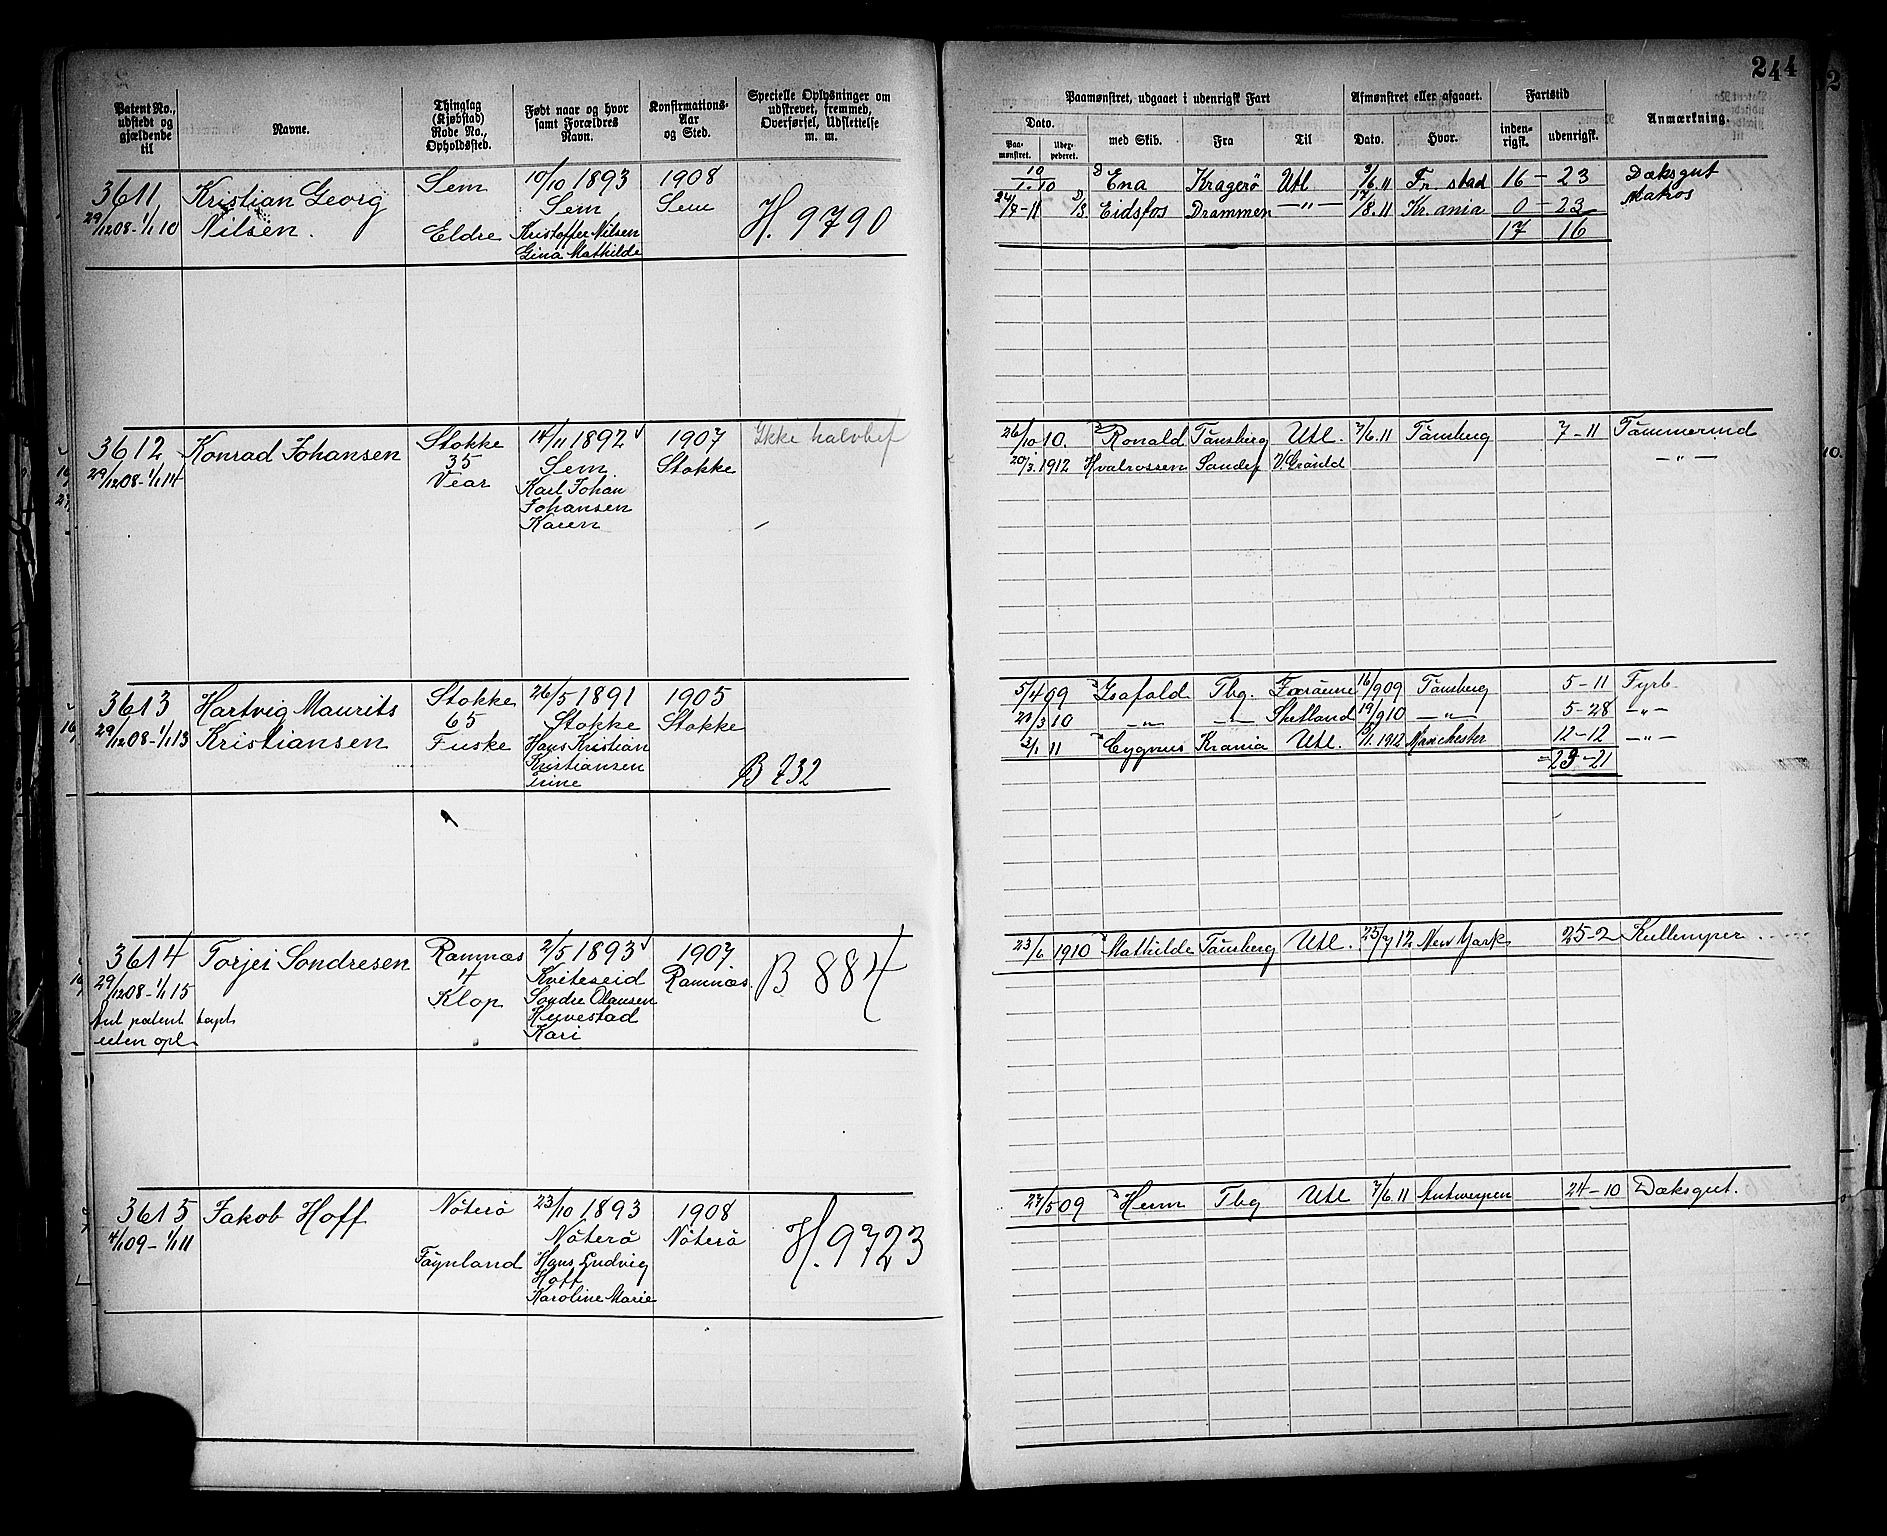 244
Patent No., udstedt og gjældende til
Navne.
Thinglag (Kjøbstad) Rode No., Opholdssted.
Født naar og hvor samt Forældres Navn.
Konfirmations-Aar og Sted.
Specielle Oplysninger om udstrevet, fremmed, Overførsel, Udslettelse m. m.
Paamønstret, udgaaet i udenrigsk Fart
Afmønstret eller afgaaet.
Fartstid
Anmærkning.
Dato.
med Skib.
Fra
Til
Dato.
Hvor.
inden-rigsk.
udenrigsk.
Paa-mønstret.
3611 Kristian Georg Sem 10/10 1893 1908
29/12 08 - 1/1 10 Nilsen. Eldre Sem Sem H. 9790
Kristoffer Nilsen
Gina Mathilde
10/1. 10 D Ena Kragerö Utl. 9/6 11 Fr. stad 16 - 23 Dæksgut
24/7 - 11 D/3 Eidsfos Drammen -"- 17/8. 11 Kr. ania 0 - 23 Matros
17 16
3612 Konrad Johansen Stokke 14/11 1892 1907 Ikke halvbef
29/12 08 - 1/1 14 35 Sem Stokke
Vear Karl Johan
Johansen
Karen
26/10 10. Ronald Tönsberg Utl. 7/6 11 Tönsberg 7 - 11 Tömmermd
20/3. 1912 Hvalrossen Sandef V. Grönld -"-
3613 Hartvig Maurits Stokke 26/5 1891 1905
29/12 08 - 1/1 13 Kristiansen 65 Stokke Stokke
Fuske Hans Kristian
Kristiansen B 732
Trine
5/4 09 Isafold Tbg. Færöene 16/9 09 Tönsberg 5 - 11 Fyrb.
/3 10 -"- -"- Shetland 19/9 10 -"- 5 - 28 -"-
3/1 11 Cygnus Krania Utl. /11. 1912 Manchester 12 - 12 -"-
- 23 - 21
3614 Torjei Sondresen Ramnæs 2/5 1893 1907 B 884
29/12 08 - 1/1 15 4 Kviteseid Ramnæs.
Klop Sondre Olausen
Ant patent tapt
uten opl. Kari
23/6 1910 Mathilde Tönsberg Utl. 25/7 12 New York 25 - 2 Kullemper
3615 Jakob Hoff Nöterö 23/10 1893 1908 H. 9723
4/1 09 - 1/1 11 Nöterö Nöterö
Föynland Hans Ludvig
Hoff
Karoline Marie
27/5 09 Heim Tbg Utl 7/6 11 Antwerpen 24 - 10 Dæksgut.